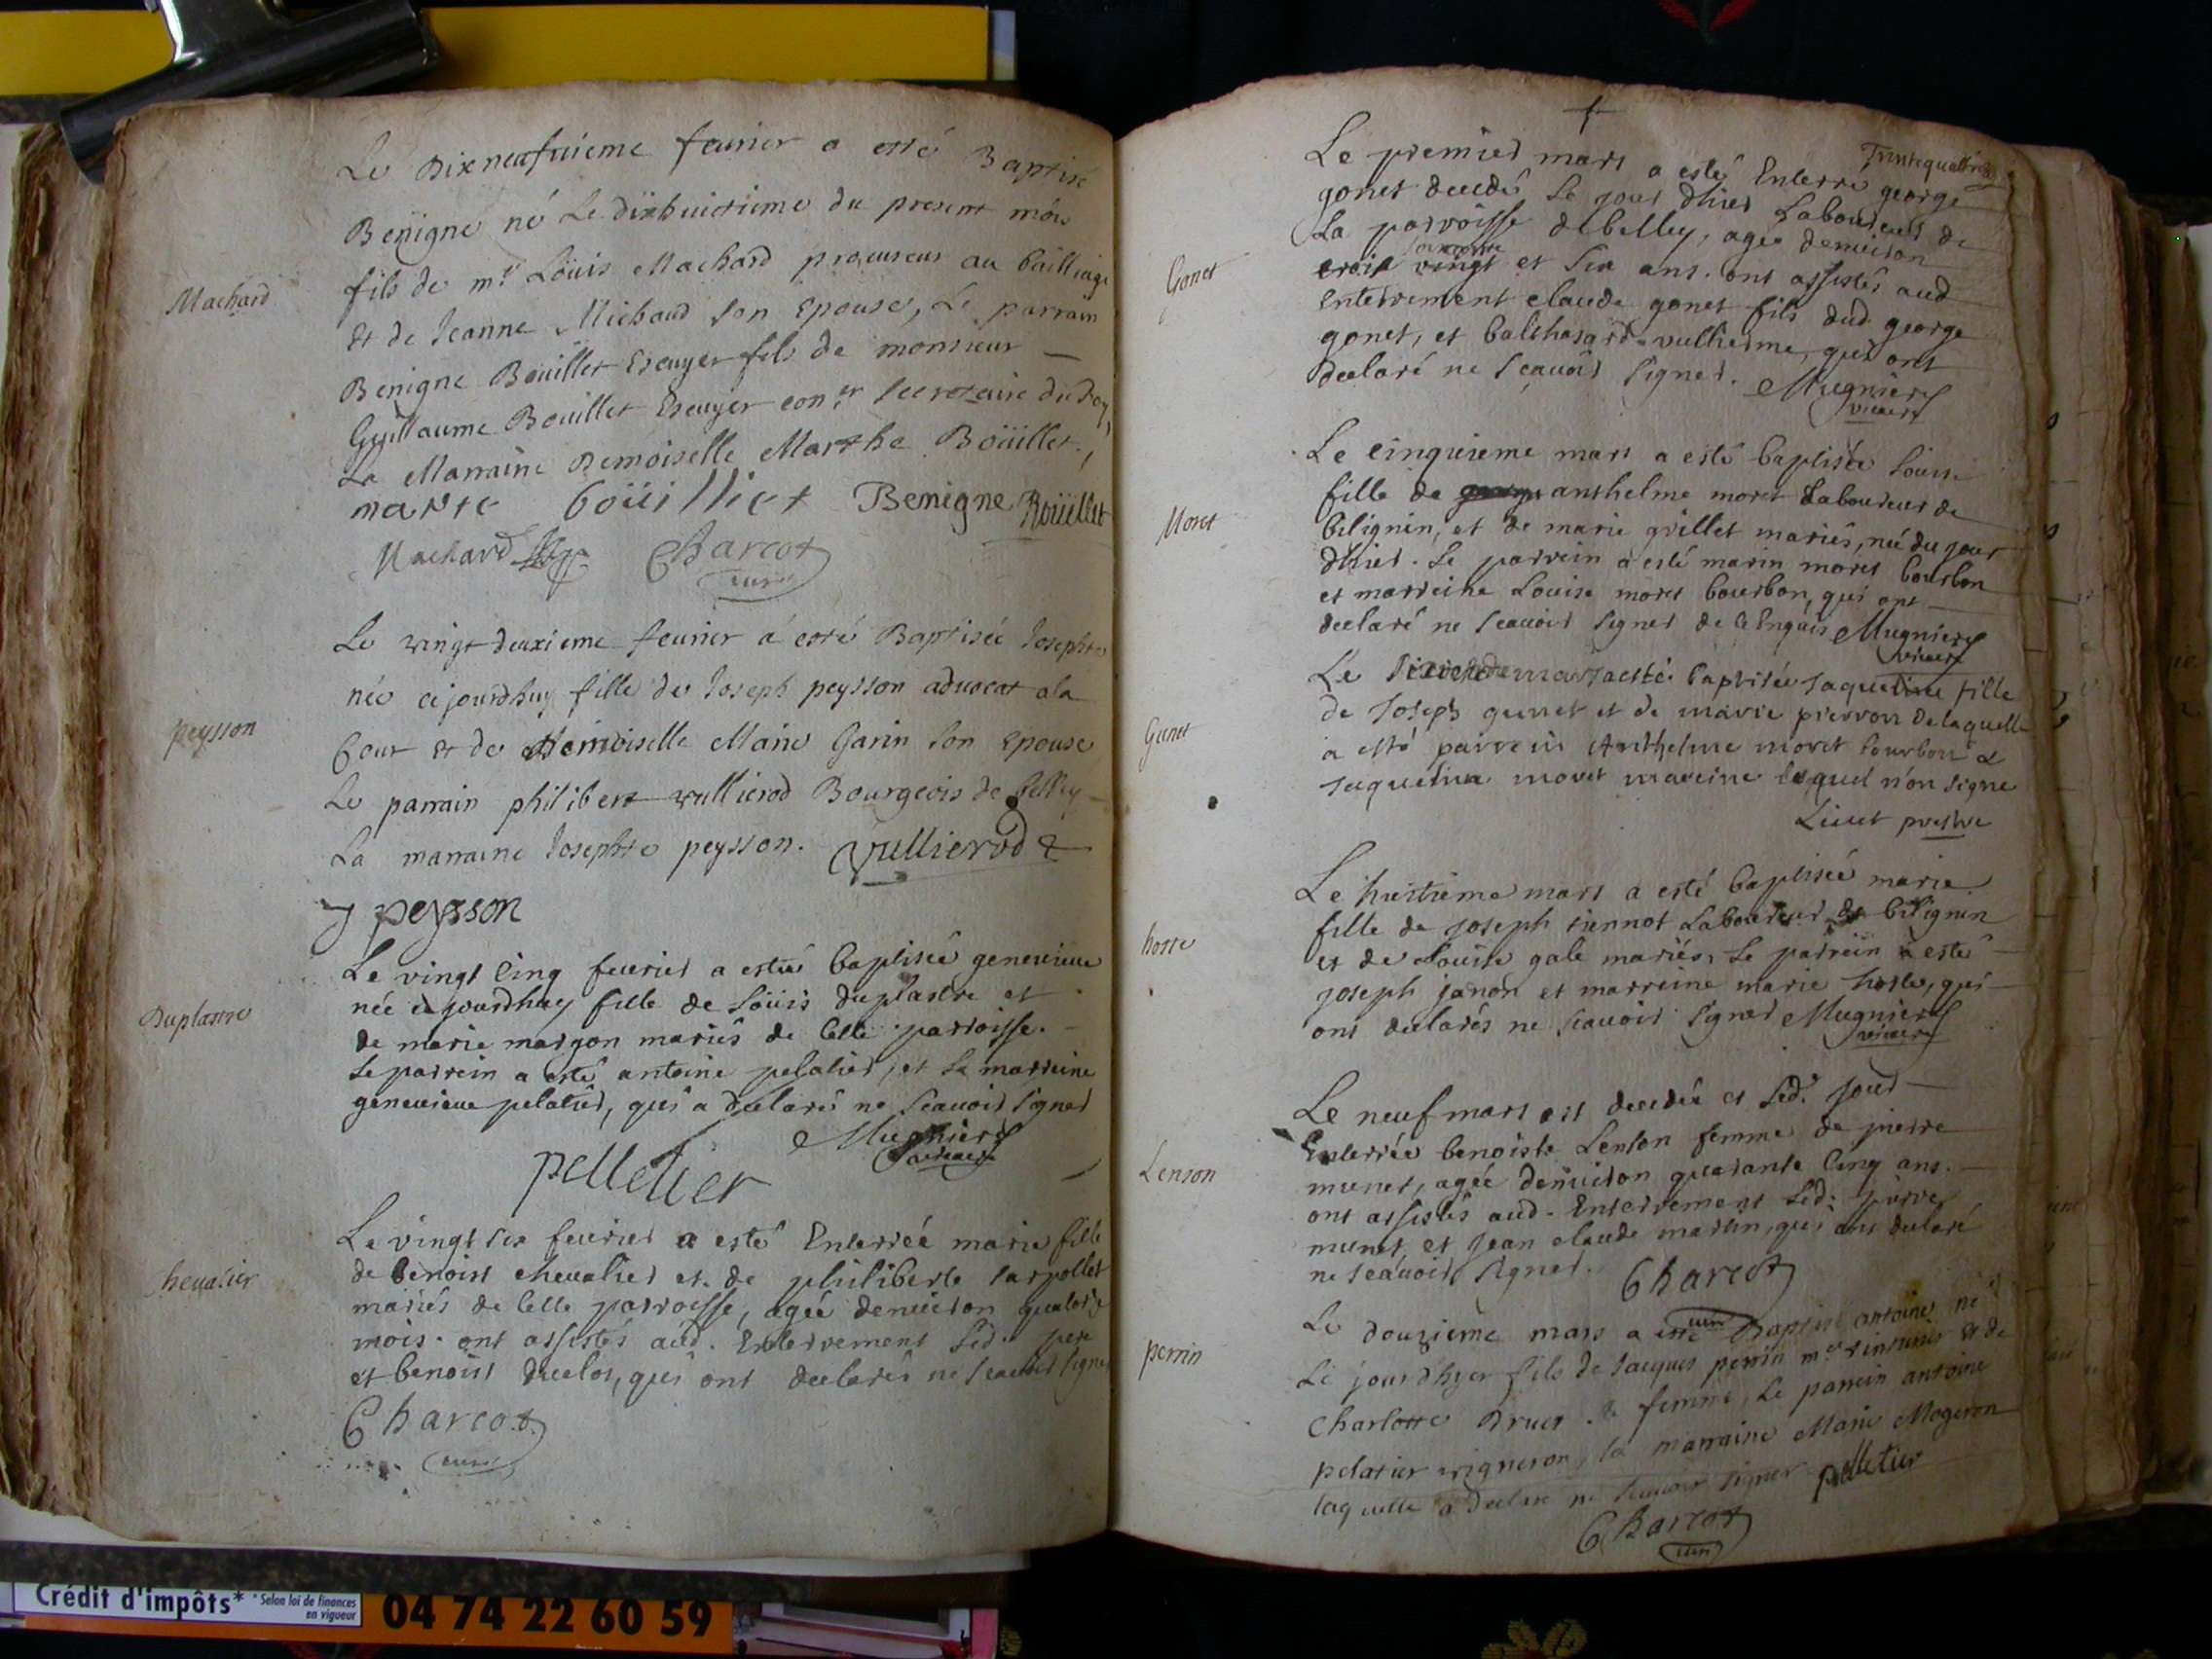 Le Dixneufuieme feurier a esté Baptisé
Benigne né Le dixhuictieme du present mois
fils de mr Loüis Machard procureur au bailliage
Machard
Et de Jeanne Michaud son Epouse, Le parrain
Benigne Boüillet Escuyer fils de monsieur
Guillaume Boüillet Escuyer coner secretaire du Roy,
La Marraine Demoiselle Marthe Boüillet,
marte boüilliet Benigne Boüillet
Machard Charcot
curé
Le vingt deuxieme feurier a esté Baptisée Josephte
née cejourdhuy fille de Joseph peysson aduocat a la
peysson
Cour Et de Demoiselle Marie Garin son Epouse
Le parrain philibert vullierod Bourgeois de Belley
La marraine Josephte peysson. Vullierod
J peysson
Le vingt cinq feurier a estée baptisée geneuieue
née cejourdhuy fille de Loüis duplastre et
Duplastre
de marie margon mariés de cette parroisse.
Le parrein a esté antoine pelatier, et La marreine
geneuieue pelatier, qui a declaré ne scauoir signer
Mugnier
vicaire
pelletier
Le vingt six feurier a esté Enterrée marie fille
de Benoist cheualier et de philiberte carpollet
cheualier
mariés de cette parroisse, agée denuiron quatorze
mois. ont assistés aud. Enterrement Led. pere
et benoist duclos, qui ont declarés ne scauoir signer
Charcot
curé
Trentequattre
Le premier mars a esté Enterré george
gonet decedé le jour dhier Laboureur de
La parroisse de belley, agée denuiron
Gonet
soixante
trois vingt et six ans. ont assistés aud
Enterrement claude gonet fils dud. george
gonet, et balthasard vulliesme, qui ont
declaré ne scauoir signer. Mugnier
vicaire
Le cinquieme mars a esté baptisée Louise
fille de anthelme moret Laboureur de
Moret
bilignin, et de marie grillet mariés, née du jour
dhier. Le parrein a esté marin moret bourbon
et marreine Louise moret bourbon, qui ont
declaré ne scauoir signer de ce Enquis Mugnier
vicaire
Le mars a esté baptisée Jaqueline fille
de Joseph gunet et de marie pierron de laquelle
Gunet
a esté parrein Anthelme moret bourbon &
Jaqueline moret mareine lequel n'on signe
Liuet prestre
Le huitieme mars a esté baptisée marie
fille de joseph tiennot Laboureur de bilignin
hoste
et de Louise gale mariés, Le parrein a esté
joseph janon et marreine marie hoste, qui
ont declarés ne scauoir signer Mugnier
vicaire
Le neuf mars est decedée et Led. jour
Enterrée benoiste Lenson femme de pierre
Lenson
munet, agée denuiron quarante cinq ans.
ont assistés aud. Enterrement Led. pierre
munet, et jean claude martin, qui ont declaré
ne scauoir signer. Charcot
curé
Le douzieme mars a esté Baptisé antoine né
perrin
Le jour dhyer fils de Jacques perrin me Et de
Charlotte Bruet sa femme, Le parrein antoine
pelatier vigneron, la marraine Marie Mogeron
laquelle a declaré ne scauoir signer pelletier
Charcot
curé
Crédit d'impôts* * Selon loi de finances
en vigueur
04 74 22 60 59